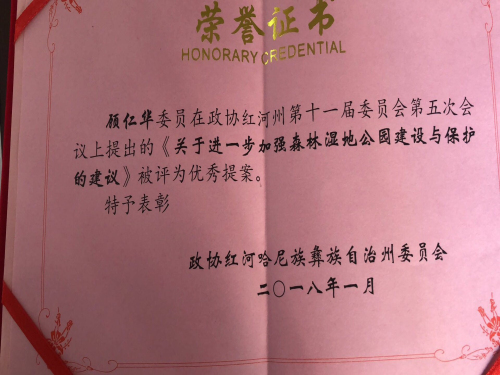 荣誉证书
HONORARY CREDENTIAL
顾仁华委员在政协红河州第十一届委员会第五次会
议上提出的《关于进一步加强森林湿地公园建设与保护
的建议》被评为优秀提案。
特予表彰
政协红河哈尼族彝族自治州委员会
二〇一八年一月